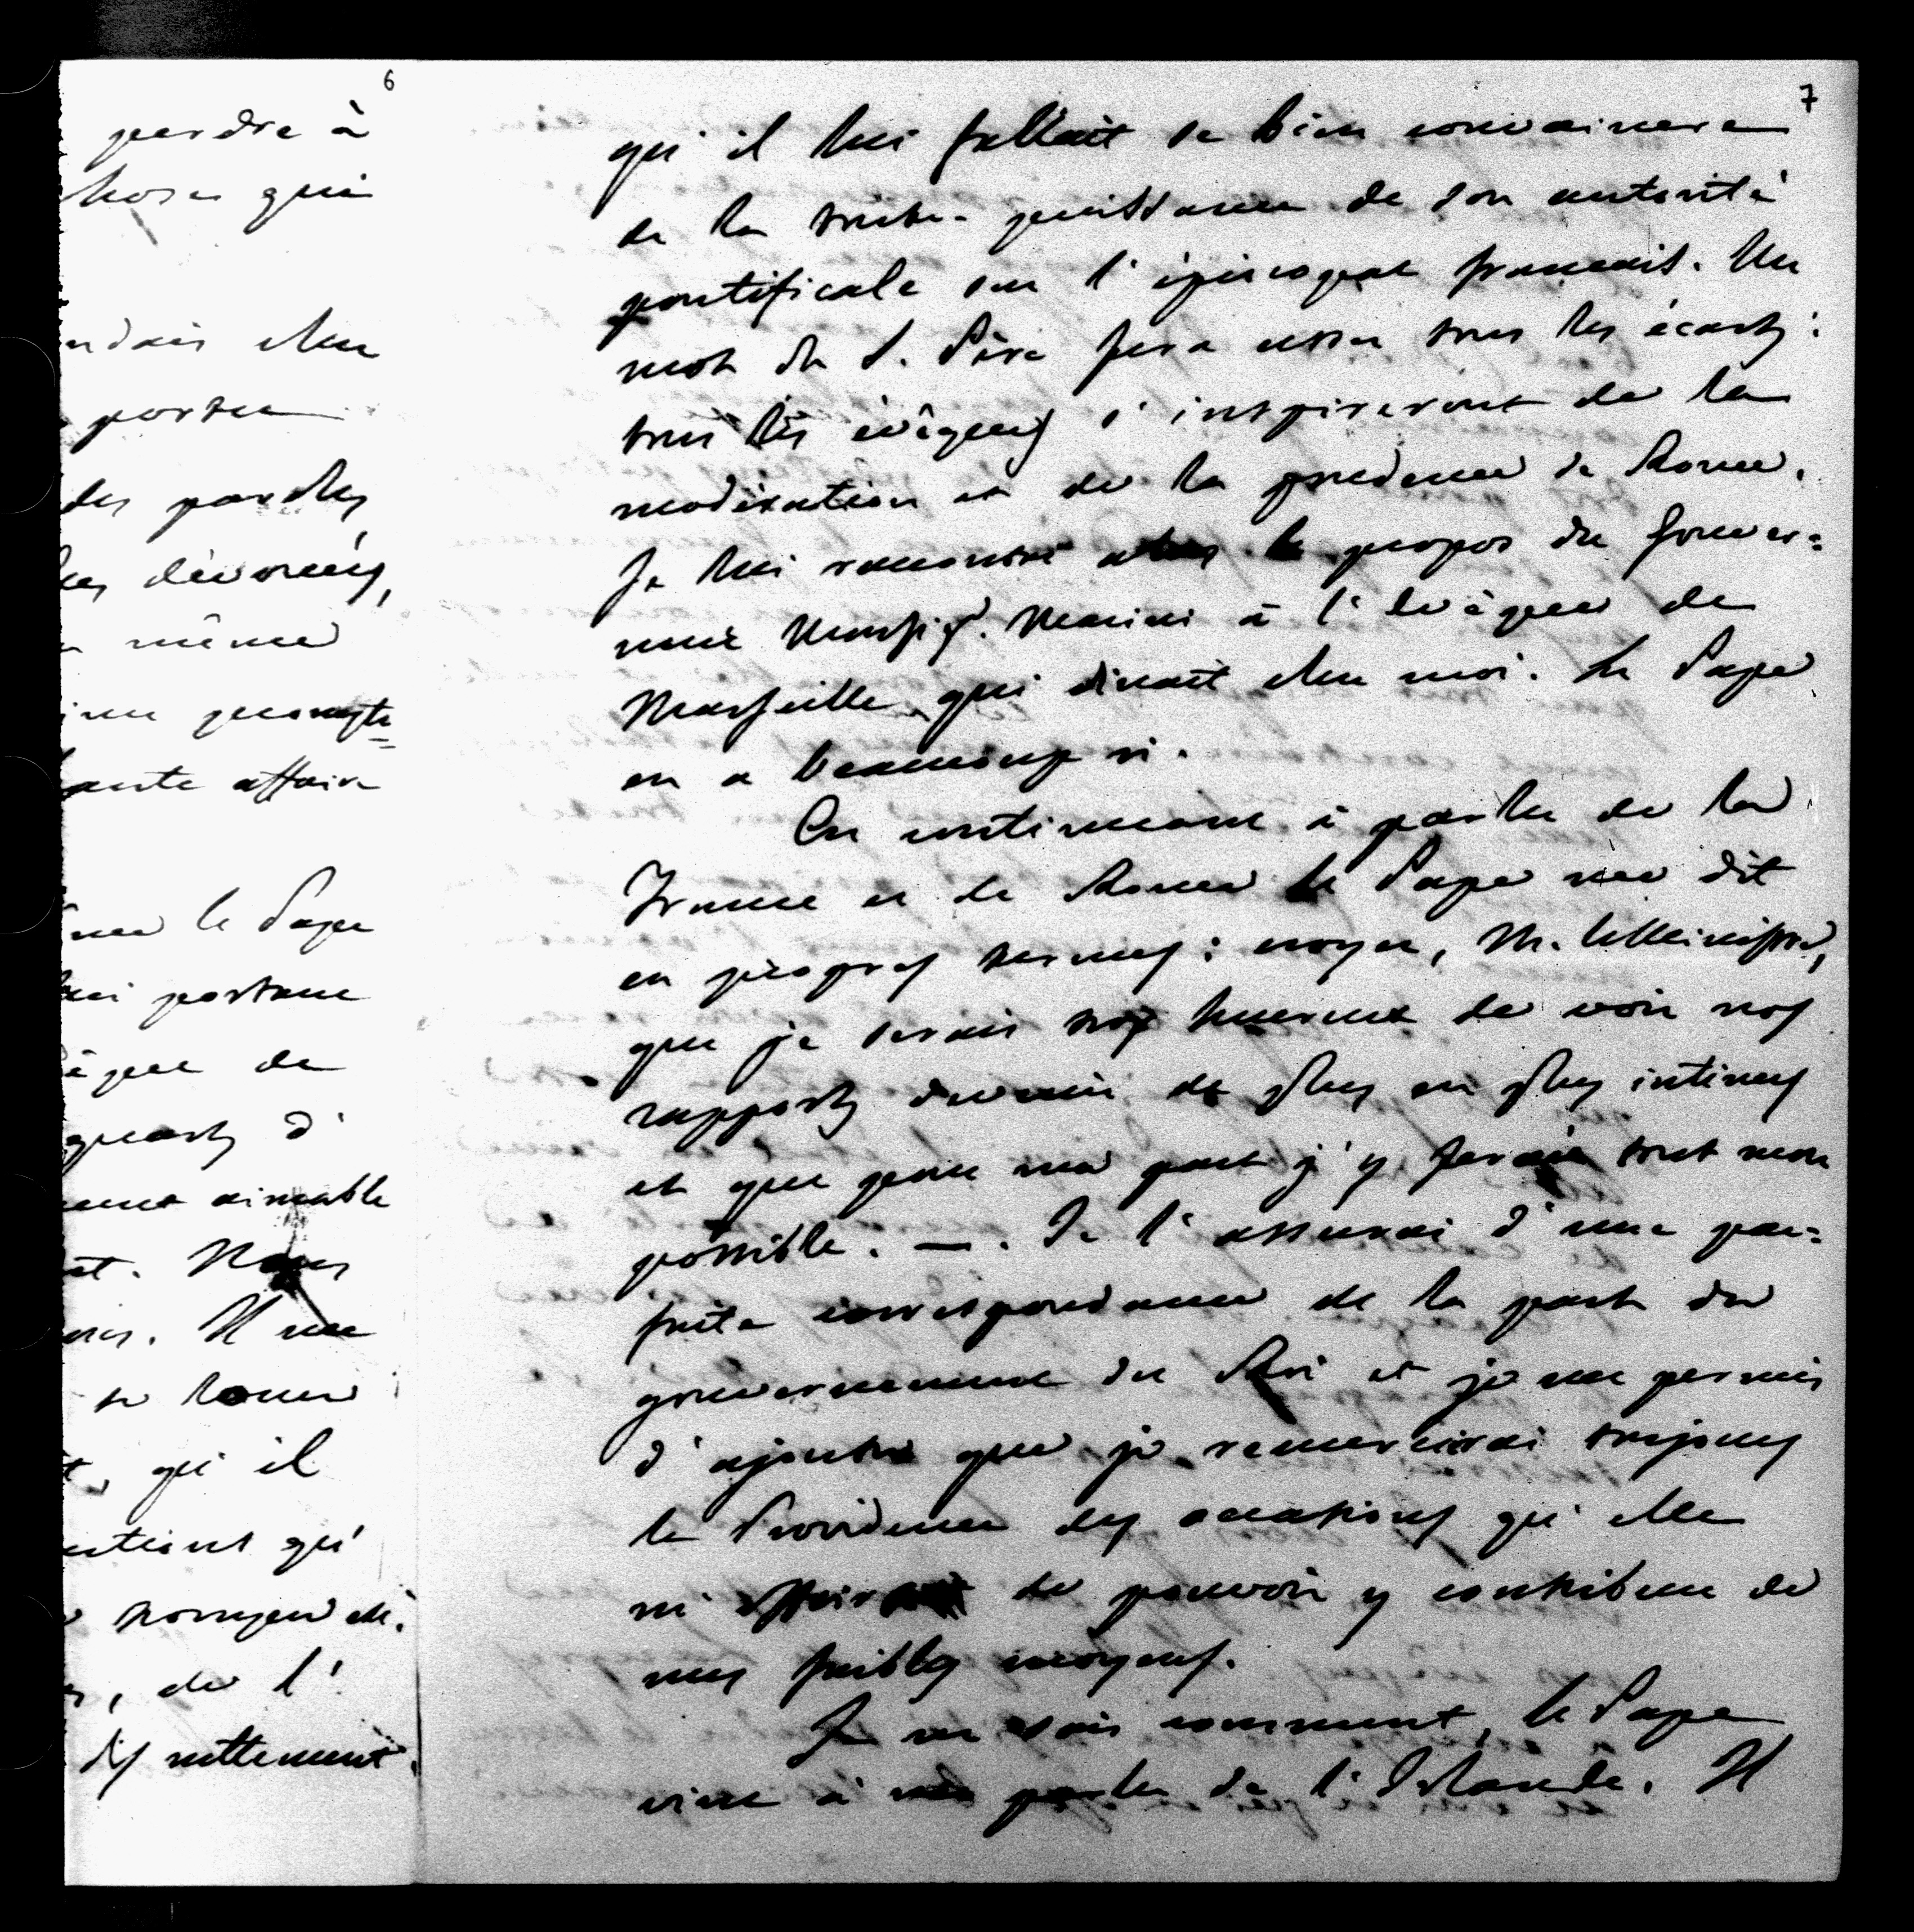 6
perdre à
choses qui
chez
porter
des paroles
les dévouées,
même
prompte
affaire
le Pape
lui portant
de
quarts d'
aimable
Nous
Il me
se louer
qu'il
qu'
de l'
dis nettement.
7
qu'il lui fallait se bien convaincre
de la toute-puissance de son autorité
pontificale sur l'épiscopat français. Un
mot du S. Père fera cesser tous les écarts:
tous les évêques s'inspireront de la
modération et de la prudence de Rome.
Je lui racontai alors le propos du gouver=
neur Monsigr. Marini à l'évêque de
Marseille qui dinait chez moi. Le Pape
en a beaucoup ri.
En continuant à parler de la
France et de Rome le Pape me dit
en propres termes: croyez, M. le Ministre,
que je serais trop heureux de voir nos
rapports devenir de plus en plus intimes
et que pour ma part j'y ferai tout mon
possible. —. Je l'assurai d'une par=
faite correspondance de la part du
gouvernement du Roi et je me permis
d'ajouter que je remercierai toujours
la Providence des occasions qu'elle
m' de pouvoir y contribuer de
mes faibles moyens.
Je ne sais comment, le Pape
vint à me parler de l'Irlande. Il